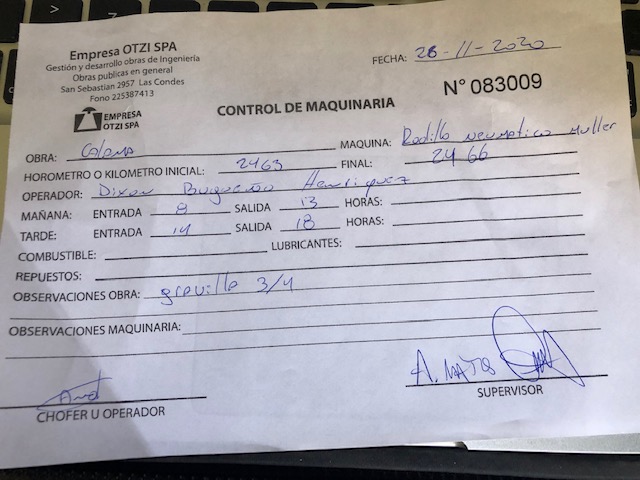 Empresa OTZI SPA
Gestión y desarrollo obras de Ingeniería
Obras publicas en general
San Sebastian 2957, Las Condes
Fono 225387413
FECHA: 28-11-2020
EMPRESA
OTZI SPA
CONTROL DE MAQUINARIA
N° 083009
OBRA: MAQUINA: Rodillo neumatico Muller
HOROMETRO O KILOMETRO INICIAL: 2463 FINAL: 2466
OPERADOR: Henriquez
MAÑANA: ENTRADA 8 SALIDA 13 HORAS:
TARDE: ENTRADA 14 SALIDA 18 HORAS:
COMBUSTIBLE: LUBRICANTES:
REPUESTOS:
OBSERVACIONES OBRA: gravilla 3/4
OBSERVACIONES MAQUINARIA:
CHOFER U OPERADOR
SUPERVISOR